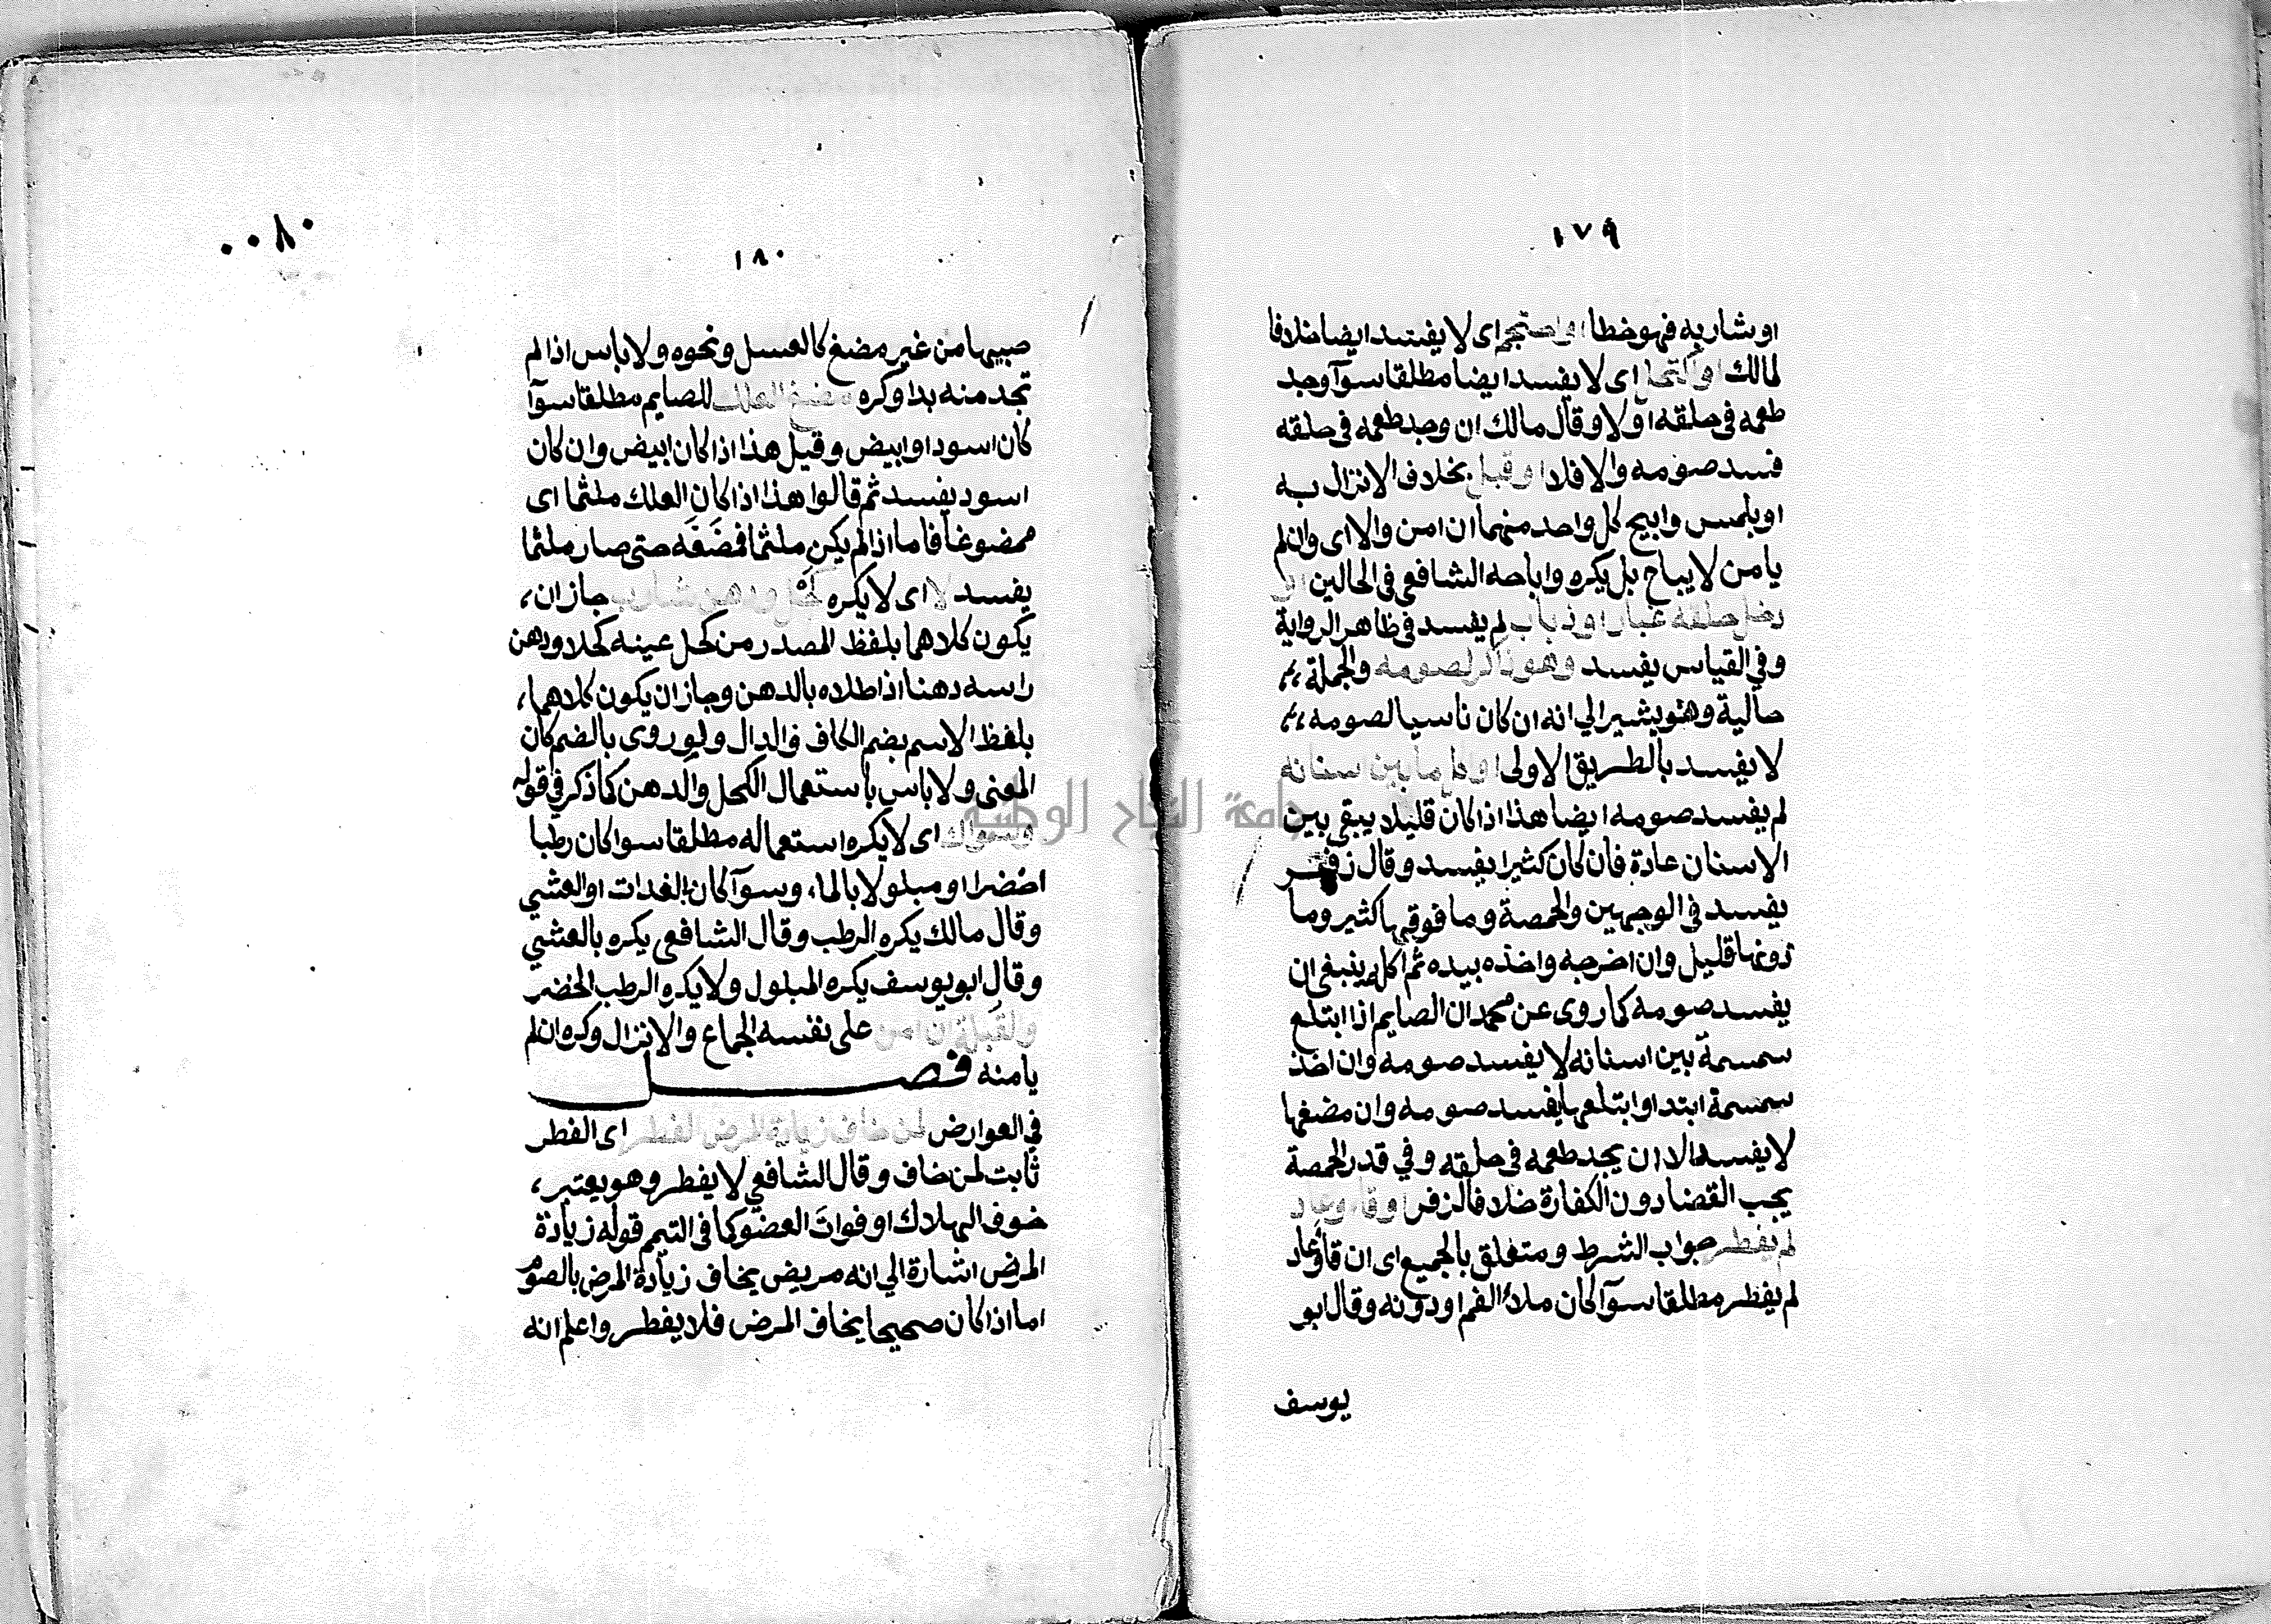 ١٧٩
او شاربه فهو خطا او احتجم اى لا يفسد ايضا خلافا
لمالك او اكتحل اى لا يفسد ايضا مطلقا سوآ وجد
طعمه فى حلقه اولا وقال مالك ان وجد طعمه فى حلقه
فسد صومه والا فلا او قبل بخلاف الانزال به
او بلمس وابيح كل واحد منهما ان امن والا اى وان لم
يامن لا يباح بل يكره واباحه الشافعى فى الحالين او
دخل حلقه غبار او ذباب لم يفسد فى ظاهر الرواية
وفي القياس يفسد وهو ذاكر لصومه والجملة
حالية وهو يشير الي انه ان كان ناسيا لصومه
لا يفسد بالطريق الاولى او اكل ما بين اسنانه
لم يفسد صومه ايضا هذا اذا كان قليلا يبقى بين
الاسنان عادة فان كان كثيرا يفسد وقال زفر
يفسد فى الوجهين والحمصة وما فوقها كثير وما
دونها قليل وان اخرجه واخذه بيده ثم اكله ينبغى ان
يفسد صومه كما روى عن محمد ان الصايم اذا ابتلع
سمسمة بين اسنانه لا يفسد صومه وان اخذ
سمسمة ابتدا وابتلعها يفسد صومه وان مضغها
لا يفسد الا ان يجد طعمه فى حلقه وفي قدر الحمصة
يجب القضا دون الكفارة خلافا لزفر او قاء وعاد
لم يفطر جواب الشرط ومتعلق بالجميع اى ان قاء وعاد
لم يفطر مطلقا سوآ كان ملأ الفم او دونه وقال ابو
يوسف
٠٠٨٠
١٨٠
صبيها من غير مضغ كالعسل ونحوه ولا باس اذا لم
تجد منه بدا وكره مضغ العلك للصايم مطلقا سوآ
كان اسود او ابيض وقيل هذا اذا كان ابيض وان كان
اسود يفسد ثم قالوا هذا اذا كان العلك ملتئما اى
ممضوغا فاما اذا لم يكن ملتئما فمضغه حتى صار ملتئما
يفسد لا اى لا يكره كحل ودهن شارب جاز ان
يكون كلاهما بلفظ المصدر من كحل عينه كحلا ودهن
راسه دهنا اذا طلاه بالدهن وجاز ان يكون كلاهما
بلفظ الاسم بضم الكاف والدال ولو روى بالضم كان
المعنى ولا باس باستعمال الكحل والدهن كما ذكر فى قوله
وسواك اى لا يكره استعماله مطلقا سوا كان رطبا
اخضرا او مبلولا بالماء وسوآ كان بالغدات او العشي
وقال مالك يكره الرطب وقال الشافعى يكره بالعشي
وقال ابو يوسف يكره المبلول ولا يكره الرطب الخضر
والقبلة ان امن على نفسه الجماع والانزال وكره ان لم
يامنه فصل
في العوارض لمن خاف زيادة المرض الفطر اى الفطر
ثابت لمن خاف وقال الشافعي لا يفطر وهو يعتبر
خوف الهلاك او فوات العضو كما فى التيمم قوله زيادة
المرض اشارة الي انه مريض يخاف زيادة المرض بالصوم
اما اذا كان صحيحا يخاف المرض فلا يفطر واعلم انه
جامعة النجاح الوطنية